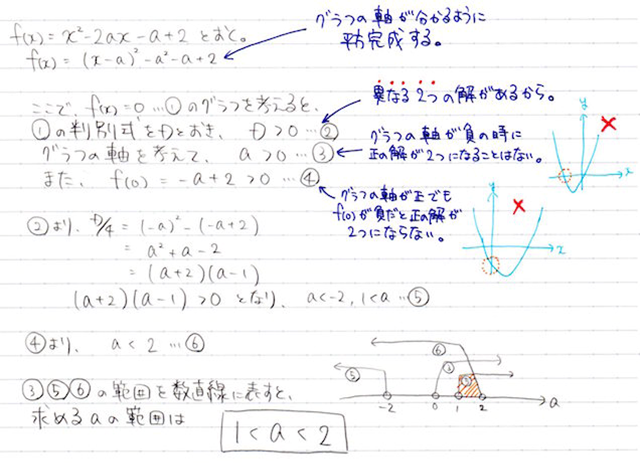 f(x) = x²-2ax-a+2 とおく。
グラフの軸が分かるように
平方完成する。
f(x) = (x-a)²-a²-a+2
ここで、f(x)=0…①のグラフを考えると、
異なる2つの解があるから。
①の判別式をDとおき、D>0…②
グラフの軸を考えて、a>0…③
グラフの軸が負の時に
正の解が2つになることはない。
また、f(0)=-a+2>0…④
グラフの軸が正でも
f(0)が負だと正の解が
2つにならない。
y
x
y
x
②より、D/4 = (-a)²-(-a+2)
= a²+a-2
= (a+2)(a-1)
(a+2)(a-1)>0 となり、a<-2, 1<a…⑤
④より、a<2…⑥
③⑤⑥の範囲を数直線に表すと、
求めるaの範囲は
1<a<2
⑥
⑤ ③
-2 0 1 2 a